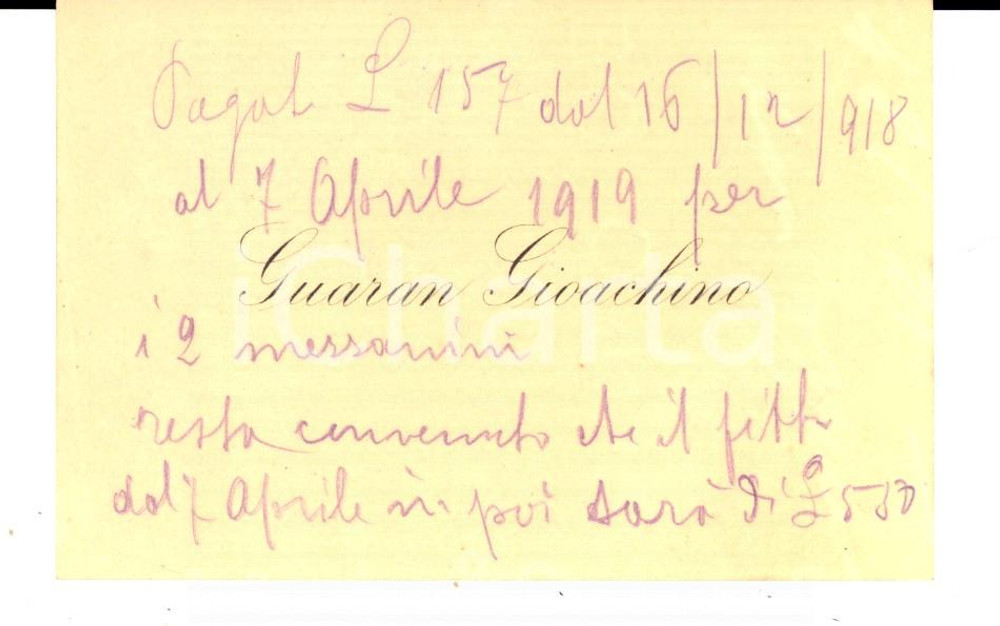 Pagat £ 157 dal 16/12/918
al 7 Aprile 1919 per
Guaran Gioachino
iCharta
i 2 messanini
resta convenuto che il fitto
dal 7 Aprile in poi sarà di £ 530